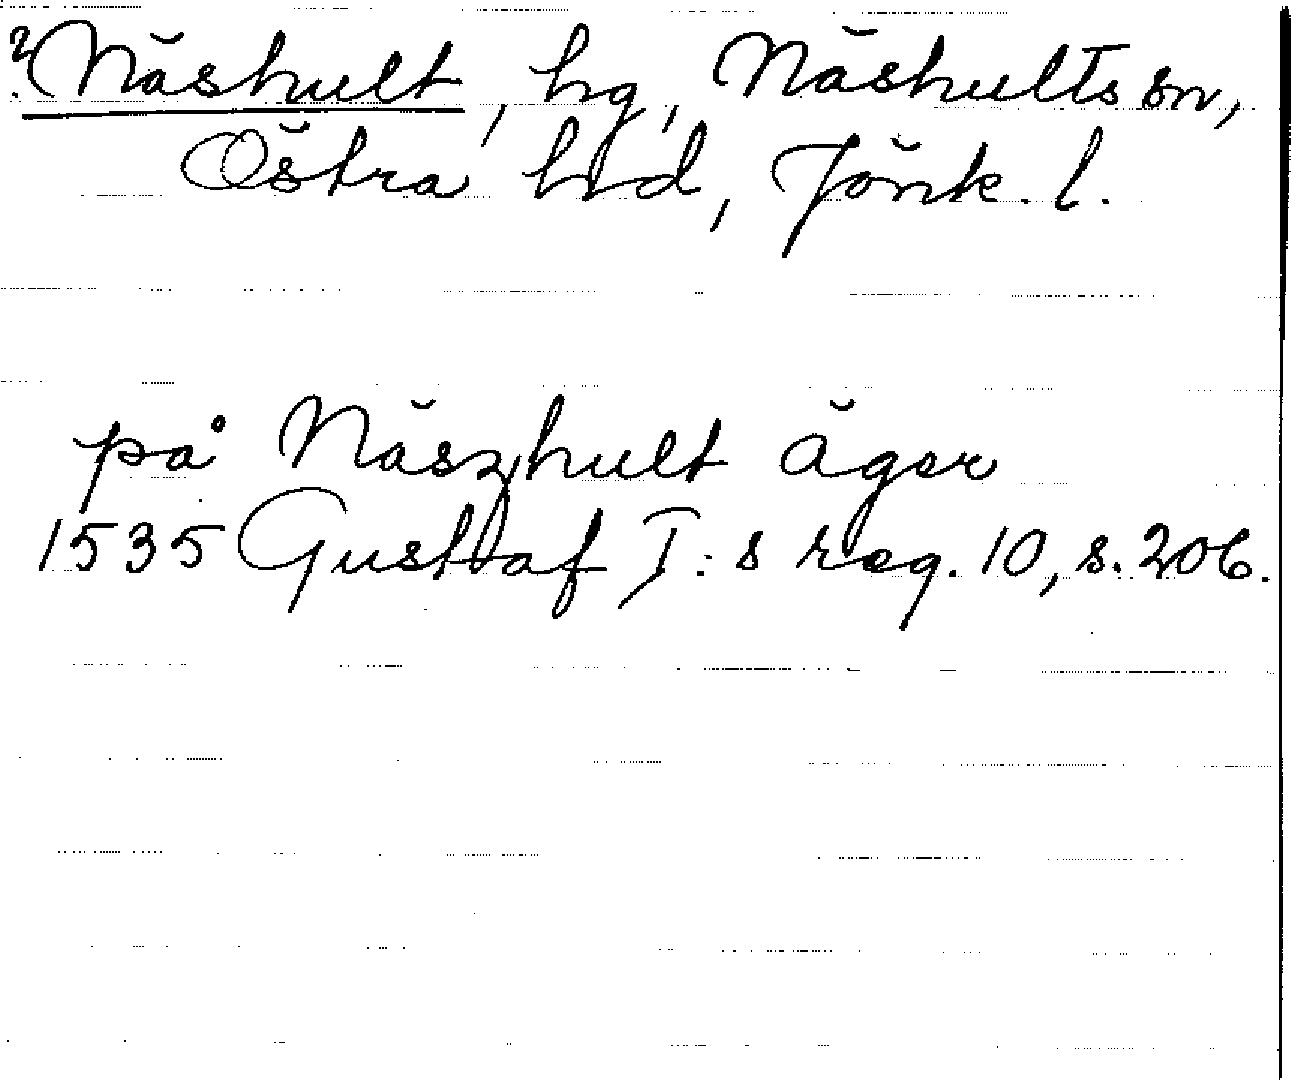 ?Näshult, hg, Näshults sn,
Östra hrd, Jönk. l.
på Näszhult äger
1535 Gustaf I:s reg. 10, s. 206.